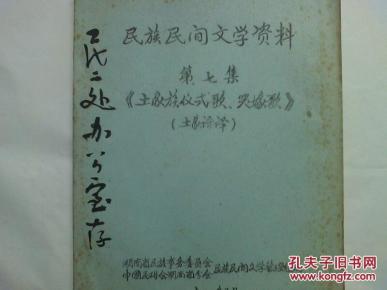 民族民间文学资料
第七集
《土家族仪式歌、哭嫁歌》
(土家语译)
民二处办公室存
湖南省民族事务委员会
中国民研会湖南省分会
民族民间文学